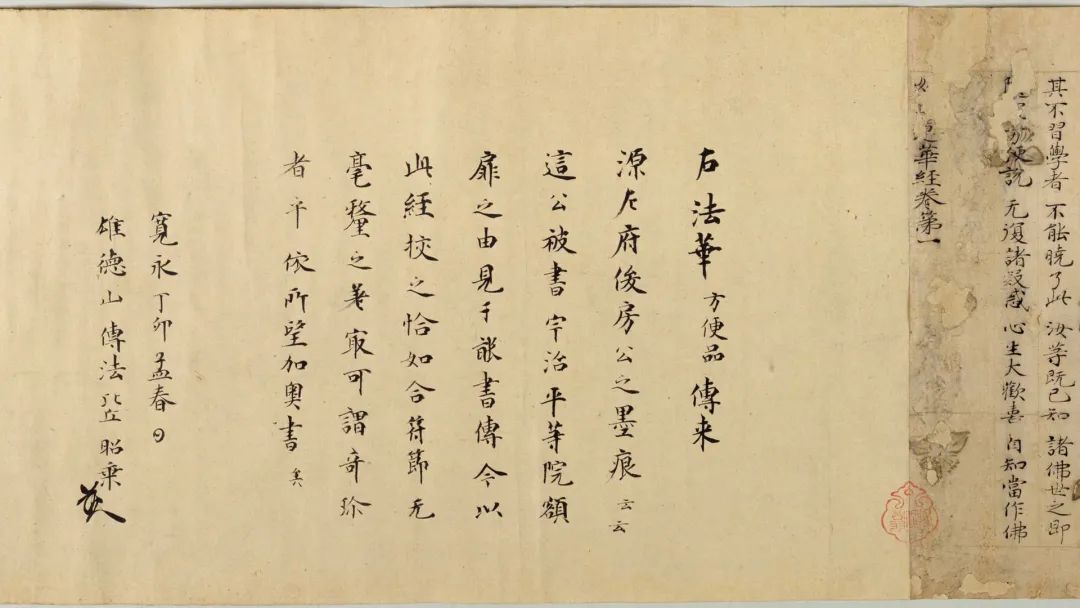 其不習學者 不能曉了此 汝等既已知 諸佛世之師
便說 无復諸疑惑 心生大歡喜 自知當作佛
蓮華経卷第一
右法華 方便品 傳来
源左府俊房公之墨痕 云云
這公被書宇治平等院額
扉之由見于能書傳今以
此経挍之恰如合符節无
毫釐之差寂可謂奇珎
者乎依所望加奥書 矣
寛永丁卯孟春日
雄德山傳法比丘昭乗